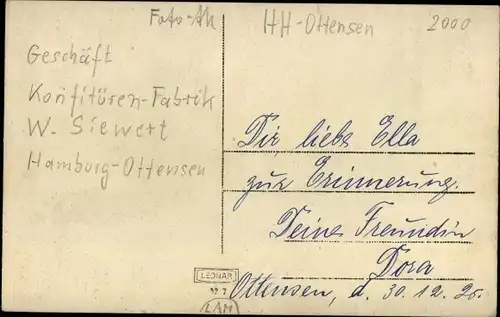 Foto-Ak
HH-Ottensen
2000
Geschäft
Konfitüren-Fabrik
W. Siewert
Hamburg-Ottensen
Dir liebe Ella
zur Erinnerung.
Deine Freundin
Dora
Ottensen, d. 30.12.25.
LEONAR
LAM